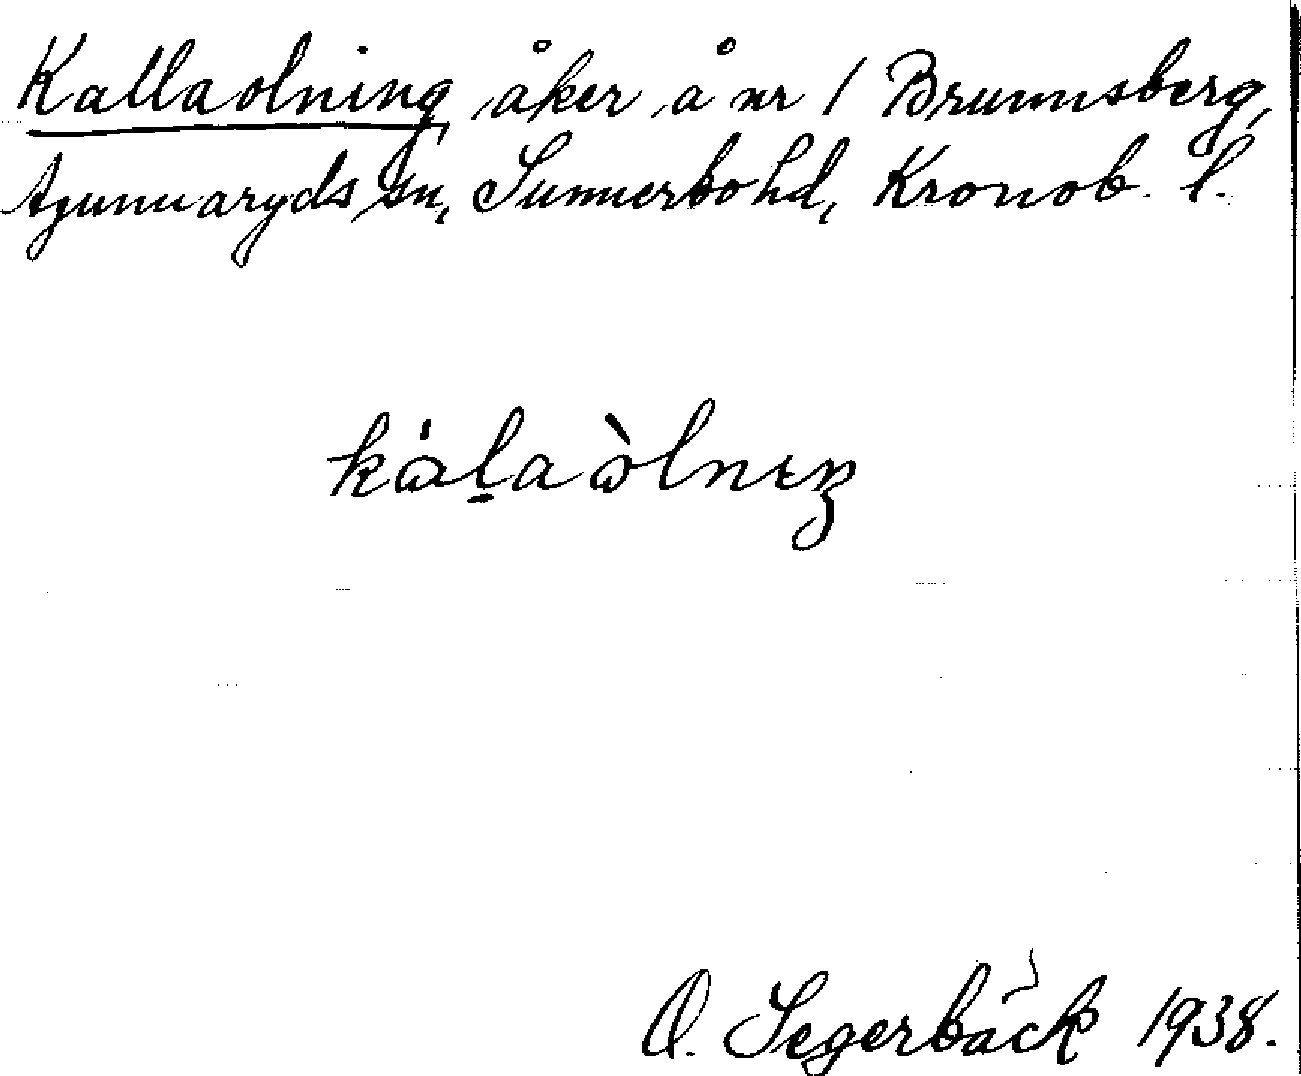 Kallaolning, åker å nr 1 Brunnsberg,
Agunnaryds sn, Sunnerbo hd, Kronob. l.
kɷ̀l̠aɷ̀lnɩŋ
O. Segerbäck 1938.